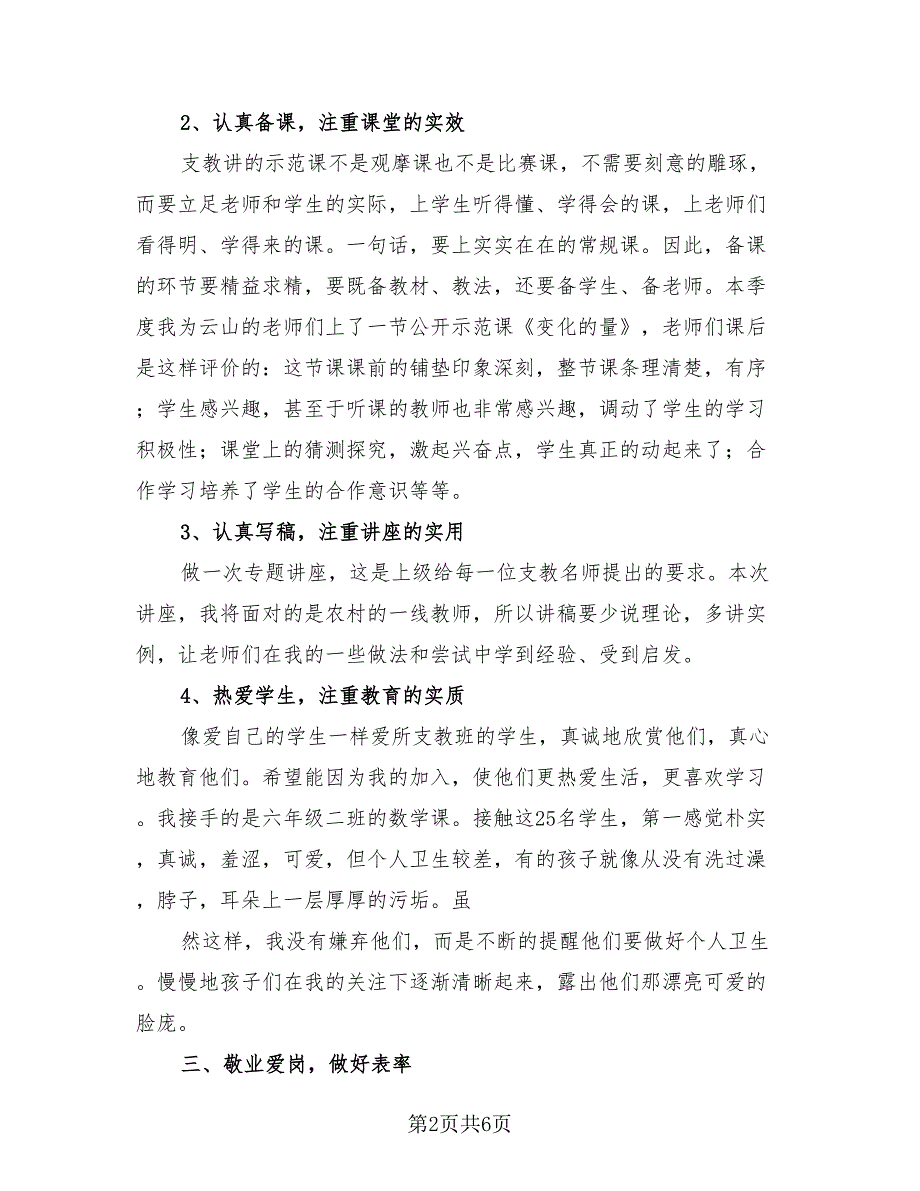 2、认真备课，注重课堂的实效
支教讲的示范课不是观摩课也不是比赛课，不需要刻意的雕琢，
而要立足老师和学生的实际，上学生听得懂、学得会的课，上老师们
看得明、学得来的课。一句话，要上实实在在的常规课。因此，备课
的环节要精益求精，要既备教材、教法，还要备学生、备老师。本季
度我为云山的老师们上了一节公开示范课《变化的量》，老师们课后
是这样评价的：这节课课前的铺垫印象深刻，整节课条理清楚，有序
；学生感兴趣，甚至于听课的教师也非常感兴趣，调动了学生的学习
积极性；课堂上的猜测探究，激起兴奋点，学生真正的动起来了；合
作学习培养了学生的合作意识等等。
3、认真写稿，注重讲座的实用
做一次专题讲座，这是上级给每一位支教名师提出的要求。本次
讲座，我将面对的是农村的一线教师，所以讲稿要少说理论，多讲实
例，让老师们在我的一些做法和尝试中学到经验、受到启发。
4、热爱学生，注重教育的实质
像爱自己的学生一样爱所支教班的学生，真诚地欣赏他们，真心
地教育他们。希望能因为我的加入，使他们更热爱生活，更喜欢学习
。我接手的是六年级二班的数学课。接触这25名学生，第一感觉朴实
，真诚，羞涩，可爱，但个人卫生较差，有的孩子就像从没有洗过澡
，脖子，耳朵上一层厚厚的污垢。虽
然这样，我没有嫌弃他们，而是不断的提醒他们要做好个人卫生
。慢慢地孩子们在我的关注下逐渐清晰起来，露出他们那漂亮可爱的
脸庞。
三、敬业爱岗，做好表率
第2页共6页